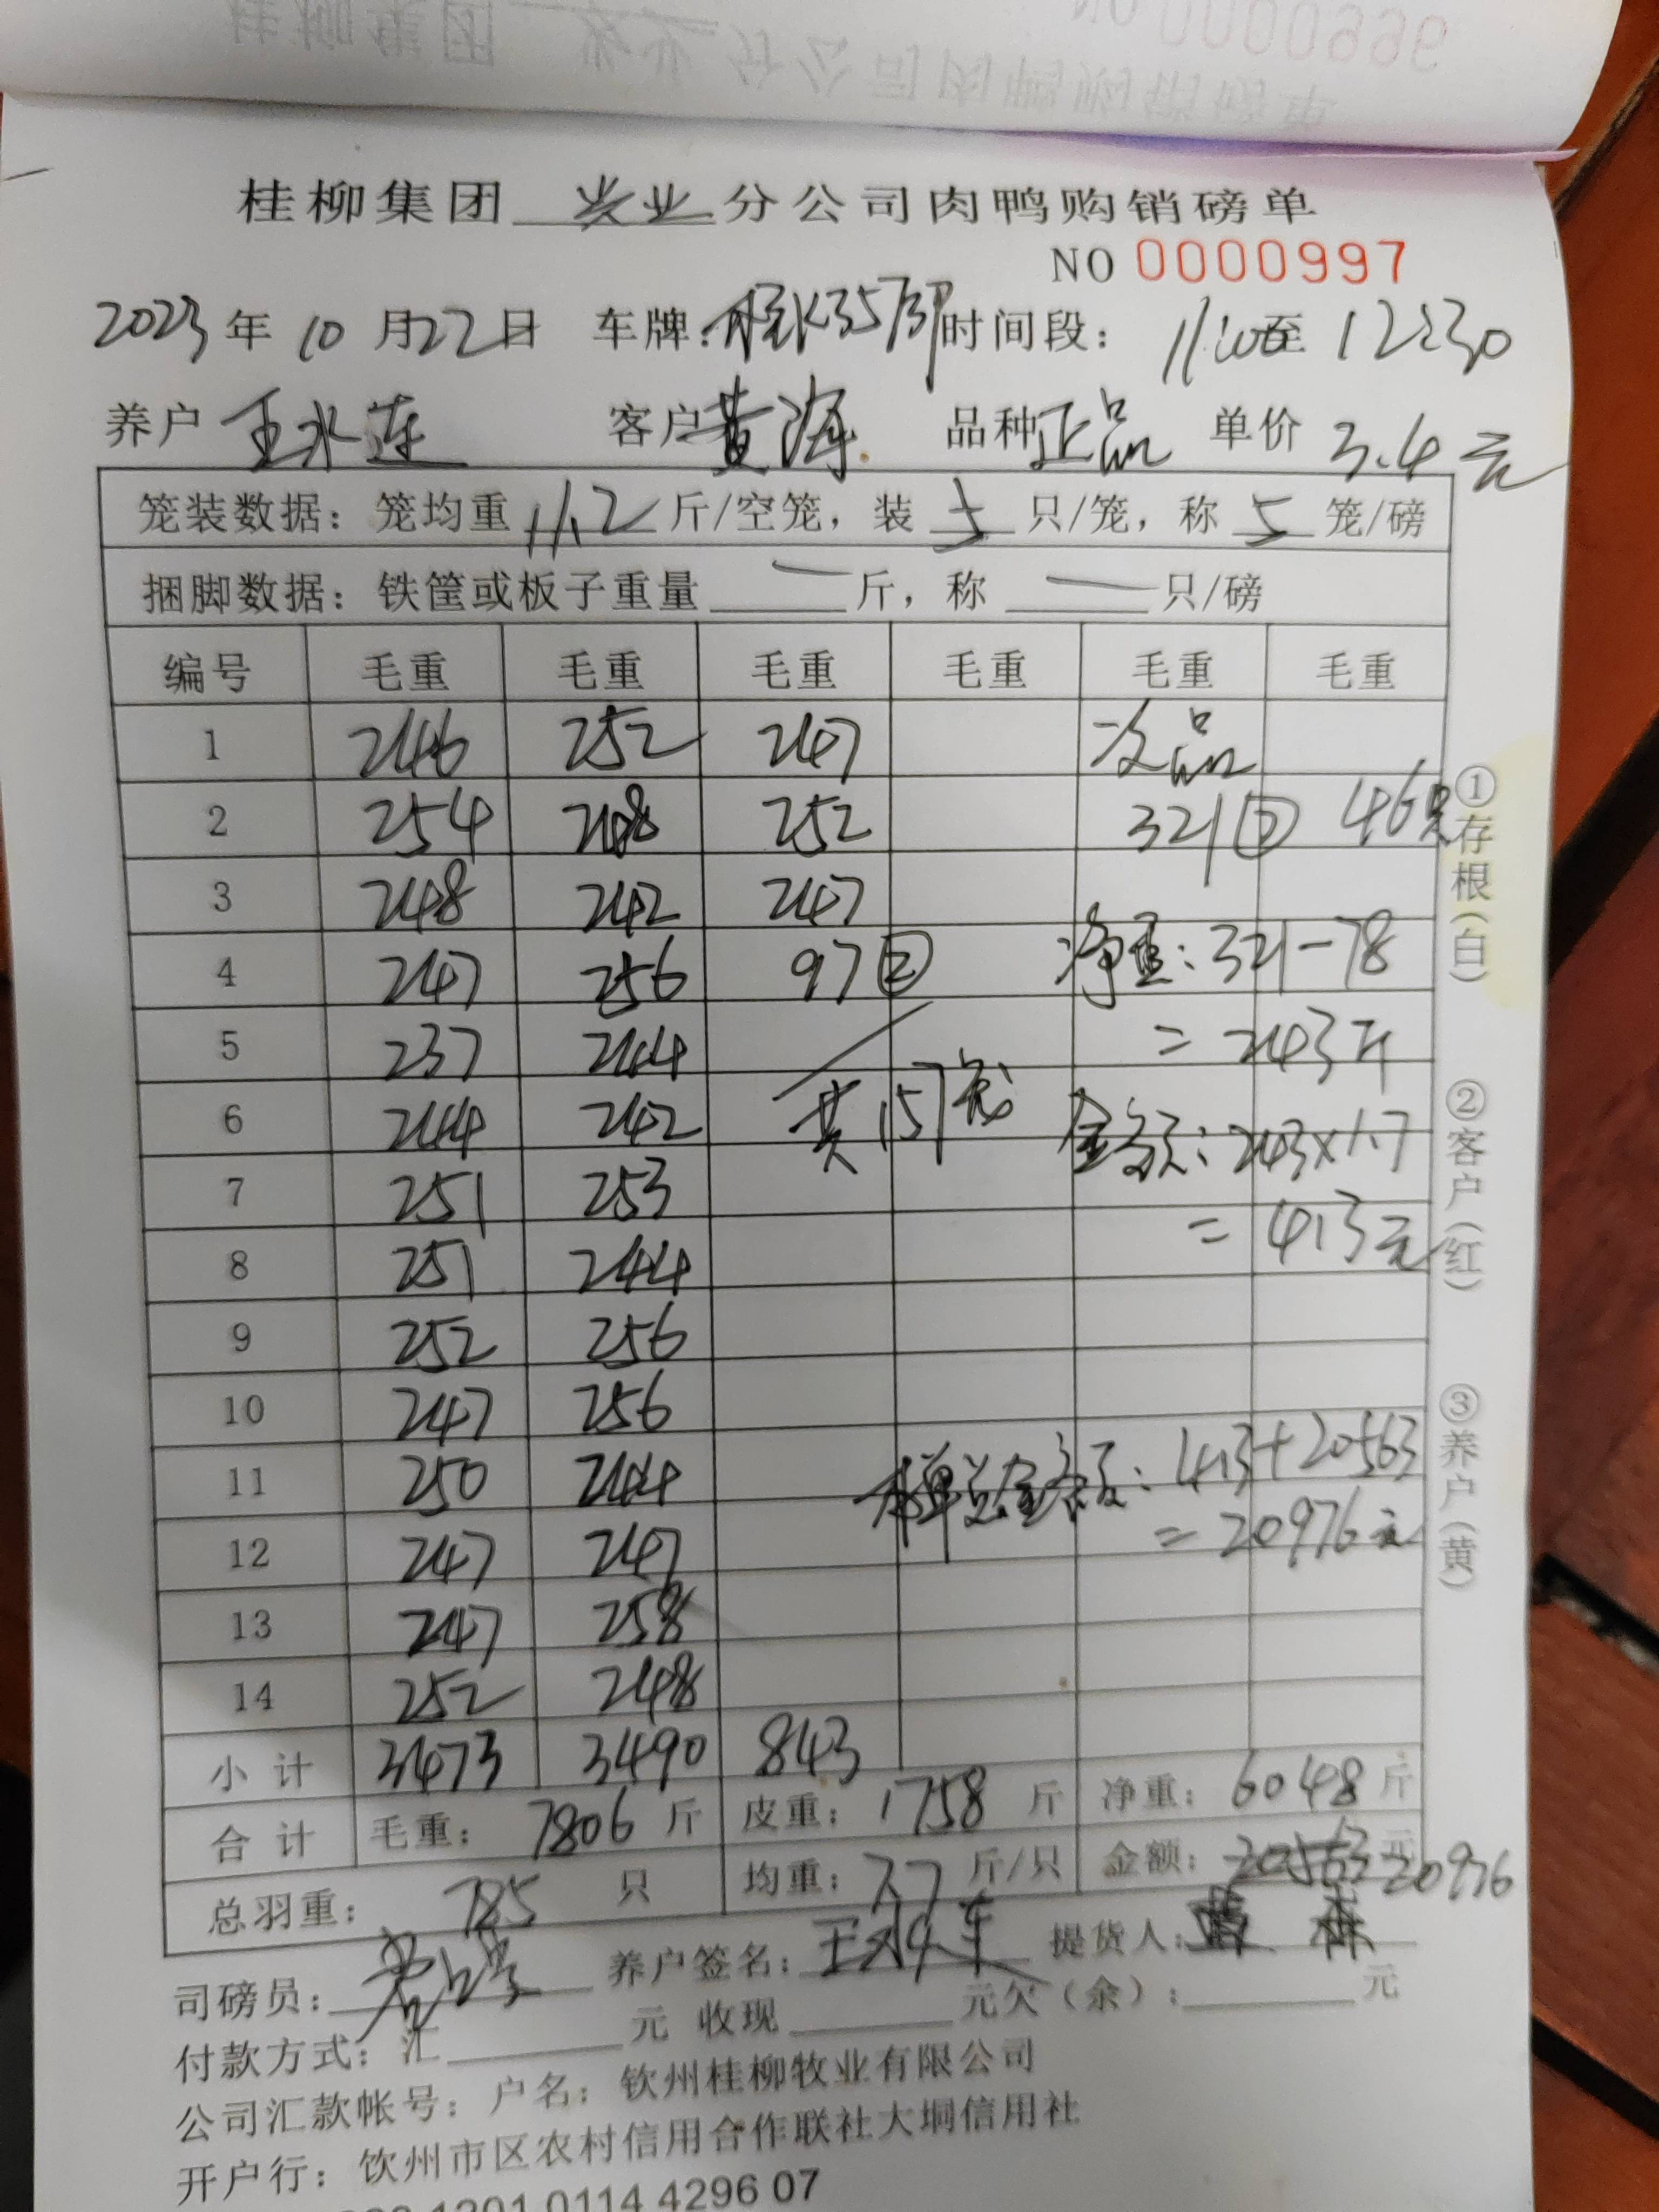 桂柳集团 兴业 分公司肉鸭购销磅单
NO 0000997
2023 年 10 月 22 日 车牌: 桂K35737 时间段: 11:00 至 12:30
养户 王水连 客户 黄海 品种 正品 单价 3.4 元
笼装数据: 笼均重 11.2 斤/空笼, 装 5 只/笼, 称 5 笼/磅
捆脚数据: 铁筐或板子重量 — 斤, 称 — 只/磅
编号 毛重 毛重 毛重 毛重 毛重 毛重
1 246 252 247 次品
2 254 248 252 321 46只
3 248 242 247
4 247 256 97② 净重: 321-78
5 237 244 = 243斤
6 244 242 共157笼 金额: 243×1.7
7 251 253 = 413元
8 251 244
9 252 256
10 247 256
11 250 244 本单总金额: 413+20563
12 247 247 = 20976元
13 247 258
14 252 248
小计 3473 3490 843
合计 毛重: 7806 斤 皮重: 1758 斤 净重: 6048 斤
总羽重: 785 只 均重: 7.7 斤/只 金额: 20563 元 20976
司磅员: 养户签名: 王水连 提货人:
付款方式: 汇 元 收现 元欠(余): 元
公司汇款帐号: 户名: 钦州桂柳牧业有限公司
开户行: 钦州市区农村信用合作联社大垌信用社
1201 0114 4296 07
①存根(白) ②客户(红) ③养户(黄)